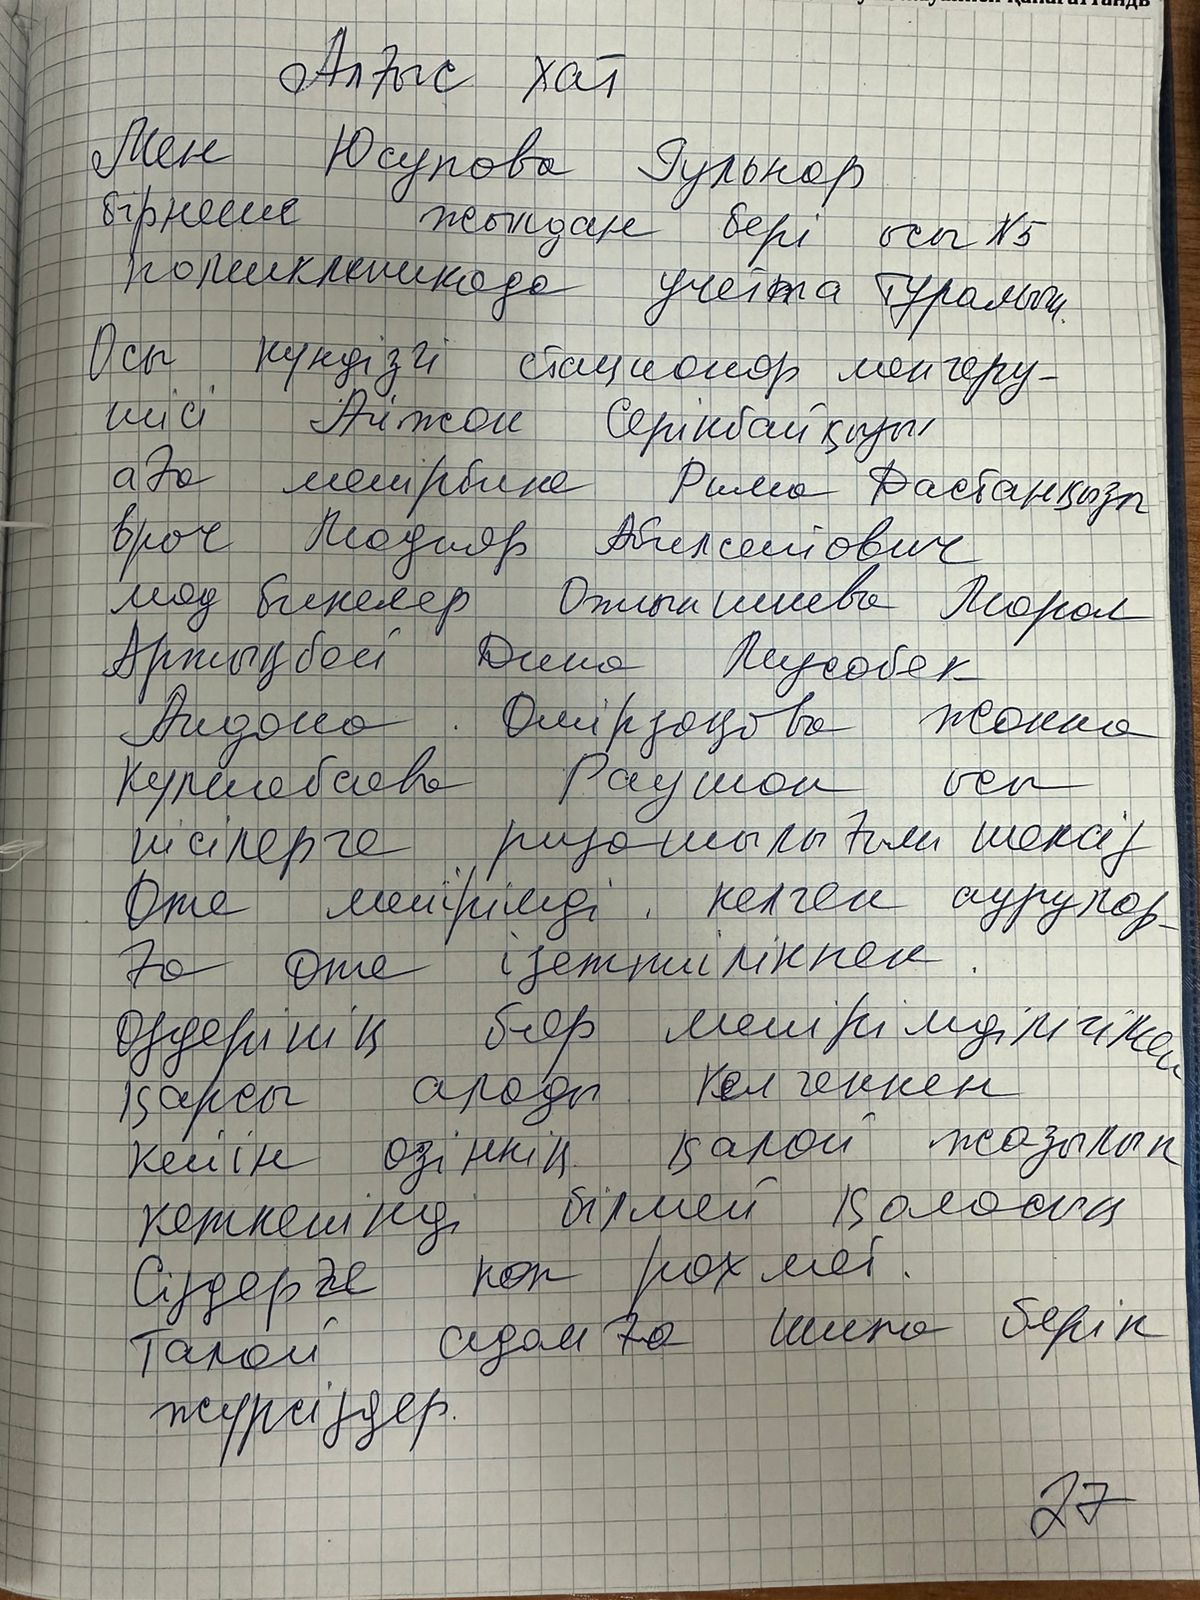 қанағаттанды
Алғыс хат
Мен Юсупова Гульнар
бірнеше жылдан бері осы №5
поликлиникада учетта тұрамын.
Осы күндізгі стационар меңгеру-
шісі Айжан Серікбайқызы
аға мейірбике Рима Дастанқызы
врач Мадияр Абилсеитович
мед бикелер Олжыкишиева Марал
Аржықбай Дина Мусабек
Аидана. Омірзақова Жанна
Кулшебаева Раушан осы
кісілерге ризашылығым шексіз
Өте мейірімді. келген аурулар-
ға өте ізеттілікпен.
өздерінің бар мейірімділігімен
қарсы алады. Келгеннен
кейін өзіннің қалай жазылып
кеткенінді білмей қаласың
Сіздерге көп рахмет.
Талай адамға шипа беріп
жүрсіздер.
27